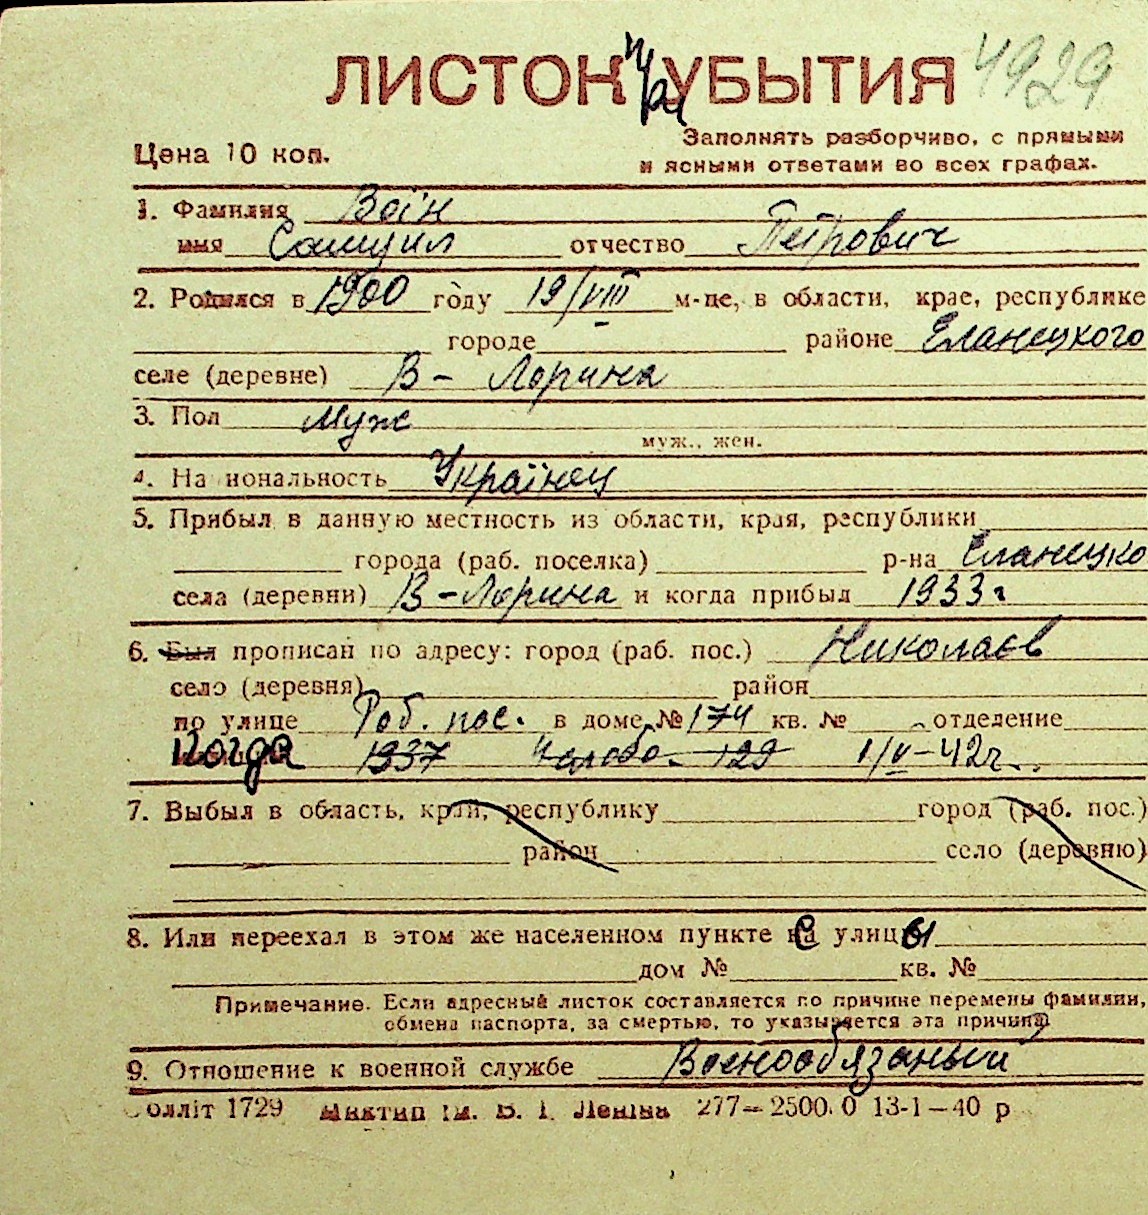 ЛИСТОК УБЫТИЯ 4929
Цена 10 коп.
Заполнять разборчиво, с прямыми
и ясными ответами во всех графах.
1. Фамилия Воїн
имя Самуил отчество Петрович
2. Родился в 1900 году 19/VIII м-це, в области, крае, республике
городе районе Еланецкого
селе (деревне) В-Лорина
3. Пол Муж
муж., жен.
4. Национальность Українец
5. Прибыл в данную местность из области, края, республики
города (раб. поселка) р-на Еланецко
села (деревни) В-Лорина и когда прибыл 1933 г
6. Был прописан по адресу: город (раб. пос.) Николаєв
село (деревня) район
по улице Роб. пос. в доме № 174 кв. № отделение
Когда 1937 129 1/V-42 г.
7. Выбыл в область, край, республику город (раб. пос.)
район село (деревню)
8. Или переехал в этом же населенном пункте с улицы
дом № кв. №
Примечание. Если адресный листок составляется по причине перемены фамилии,
обмена паспорта, за смертью, то указывается эта причина
9. Отношение к военной службе Военообязаный
олліт 1729 Миктип ім. В. І. Леніна 277—2500. 0 13-1—40 р